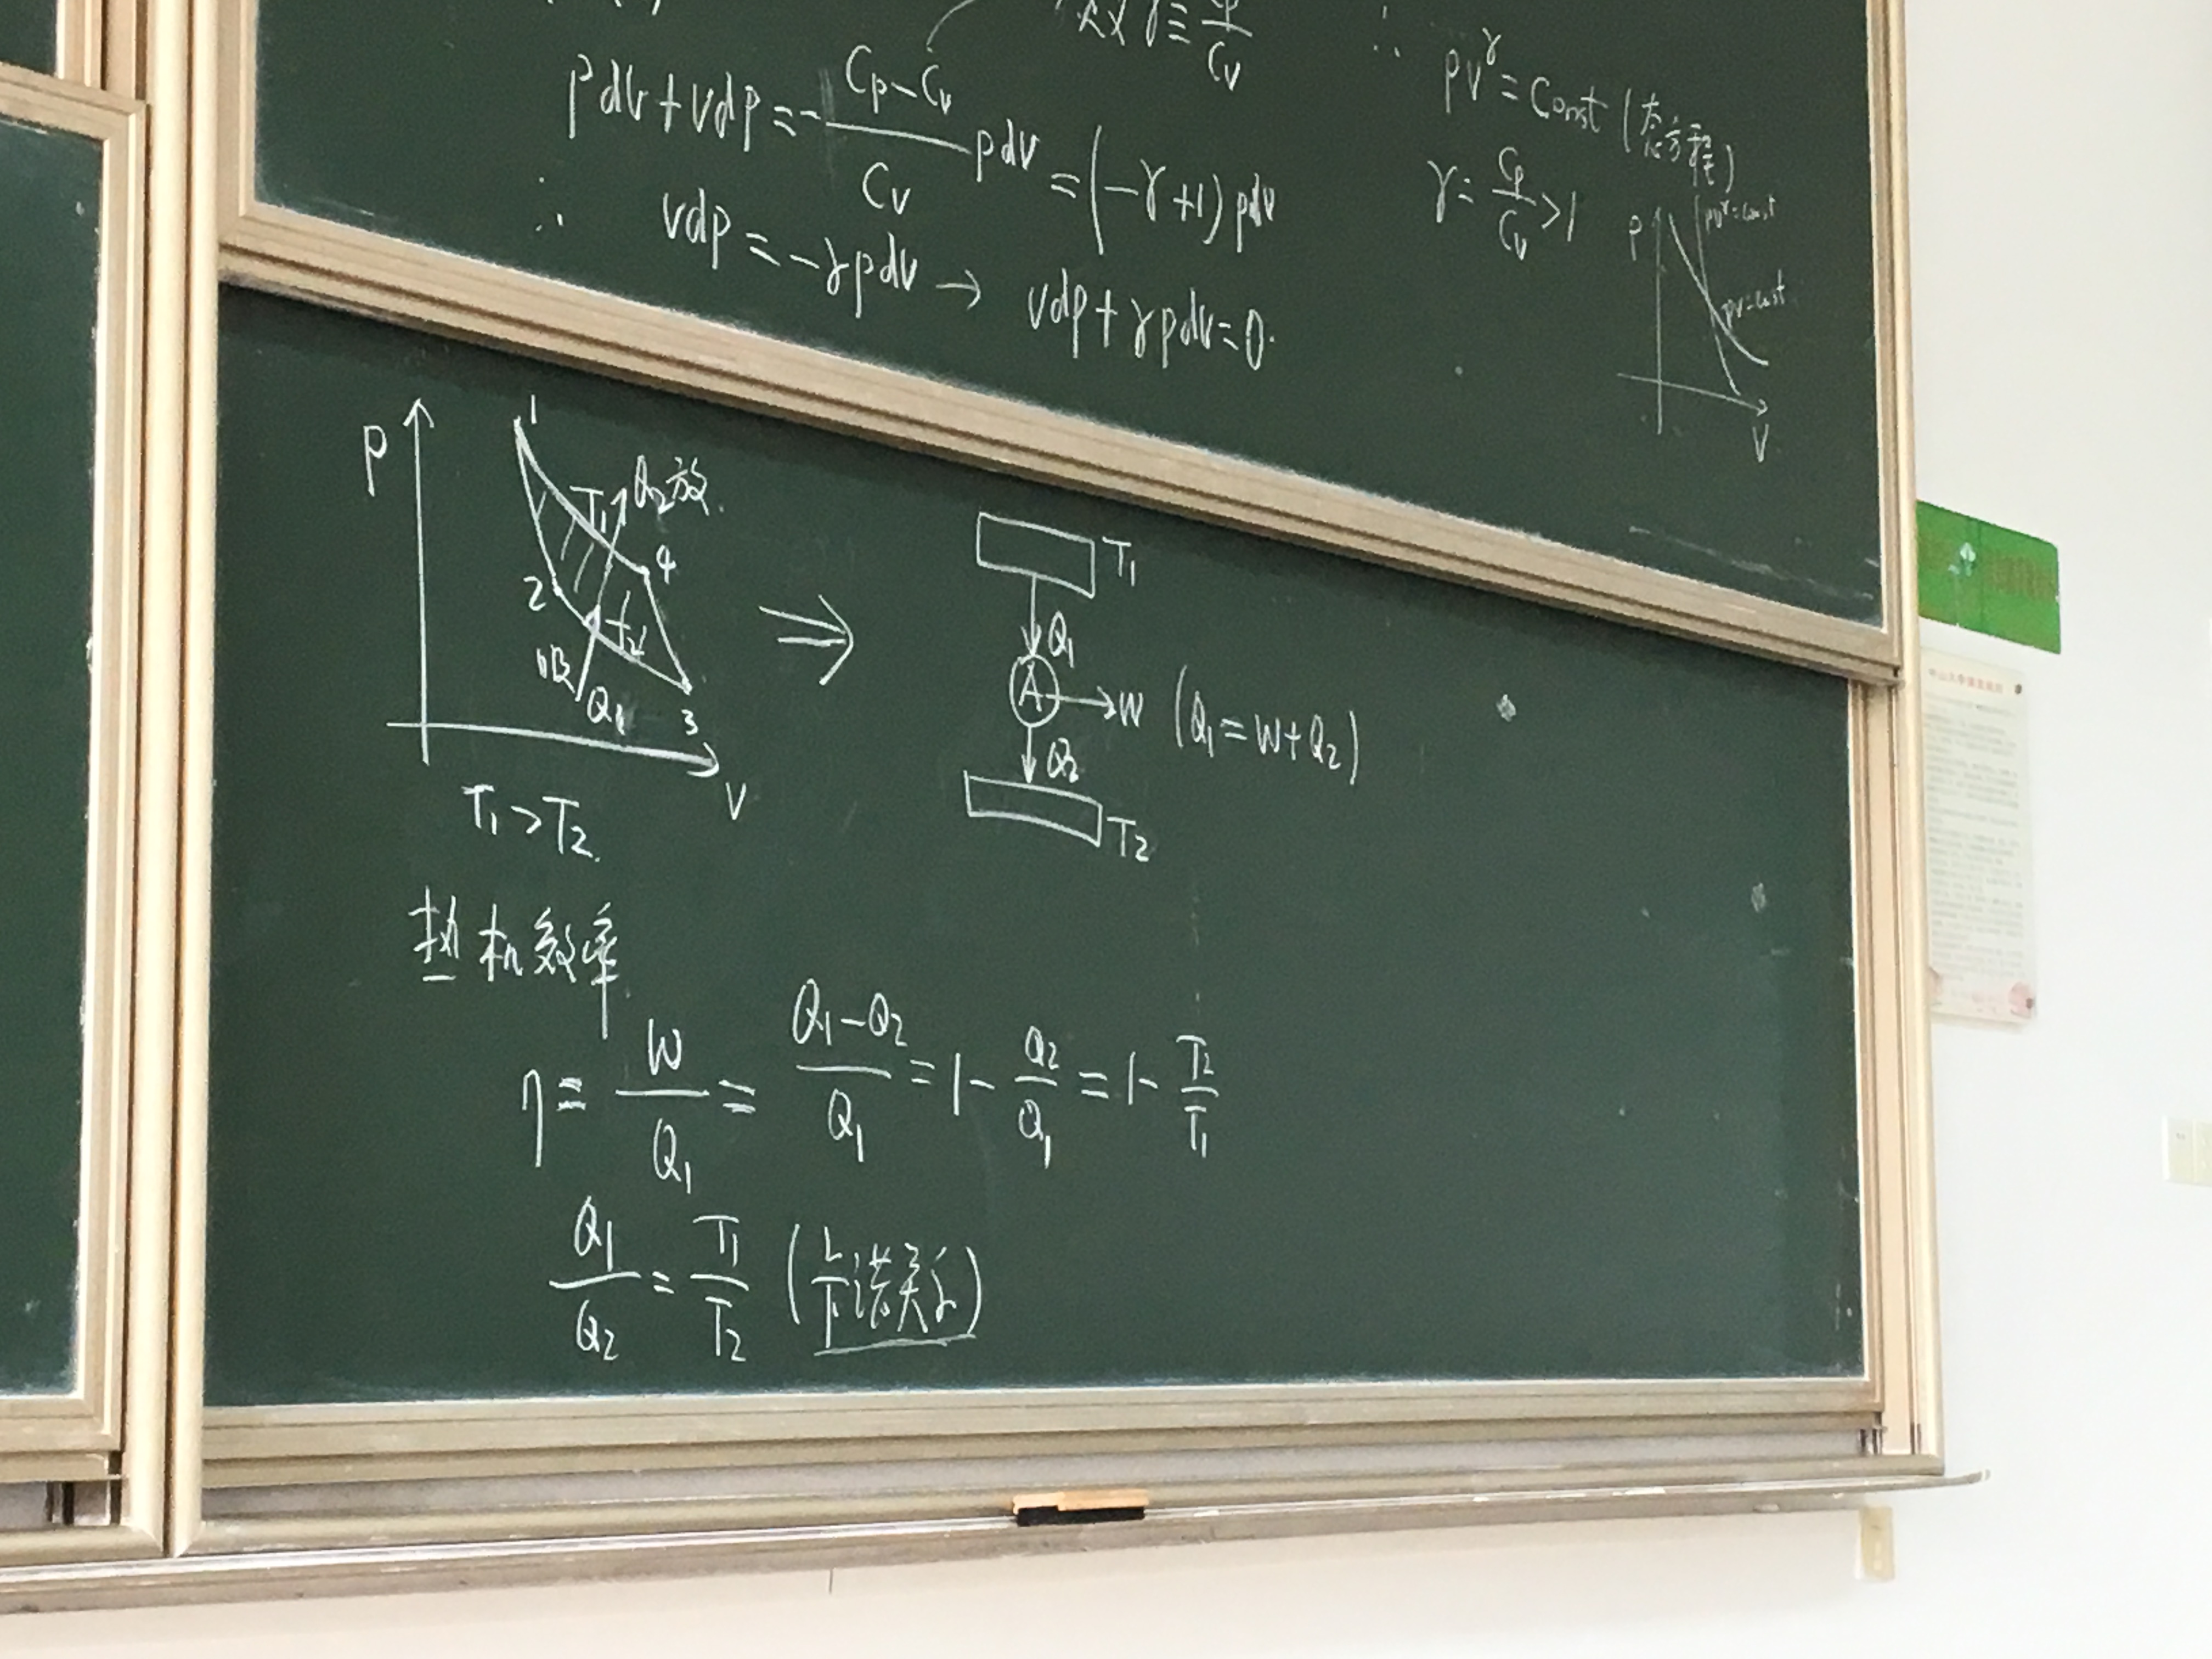 定义 γ ≡ Cp/Cv
pdv+vdp=-(Cp-Cv)/Cv pdv=(-γ+1)pdv
∴ vdp=-γpdv → vdp+γpdv=0.
∴ pv^γ=Const (态方程)
γ=Cp/Cv>1
P
pv^γ=const
pv=const
V
P
1
T1
Q2放
4
2
T2
吸
Q1
3
V
T1>T2
⇒
T1
Q1
A→W (Q1=W+Q2)
Q2
T2
热机效率
η≡W/Q1=(Q1-Q2)/Q1=1-Q2/Q1=1-T2/T1
Q1/Q2=T1/T2 (卡诺关系)